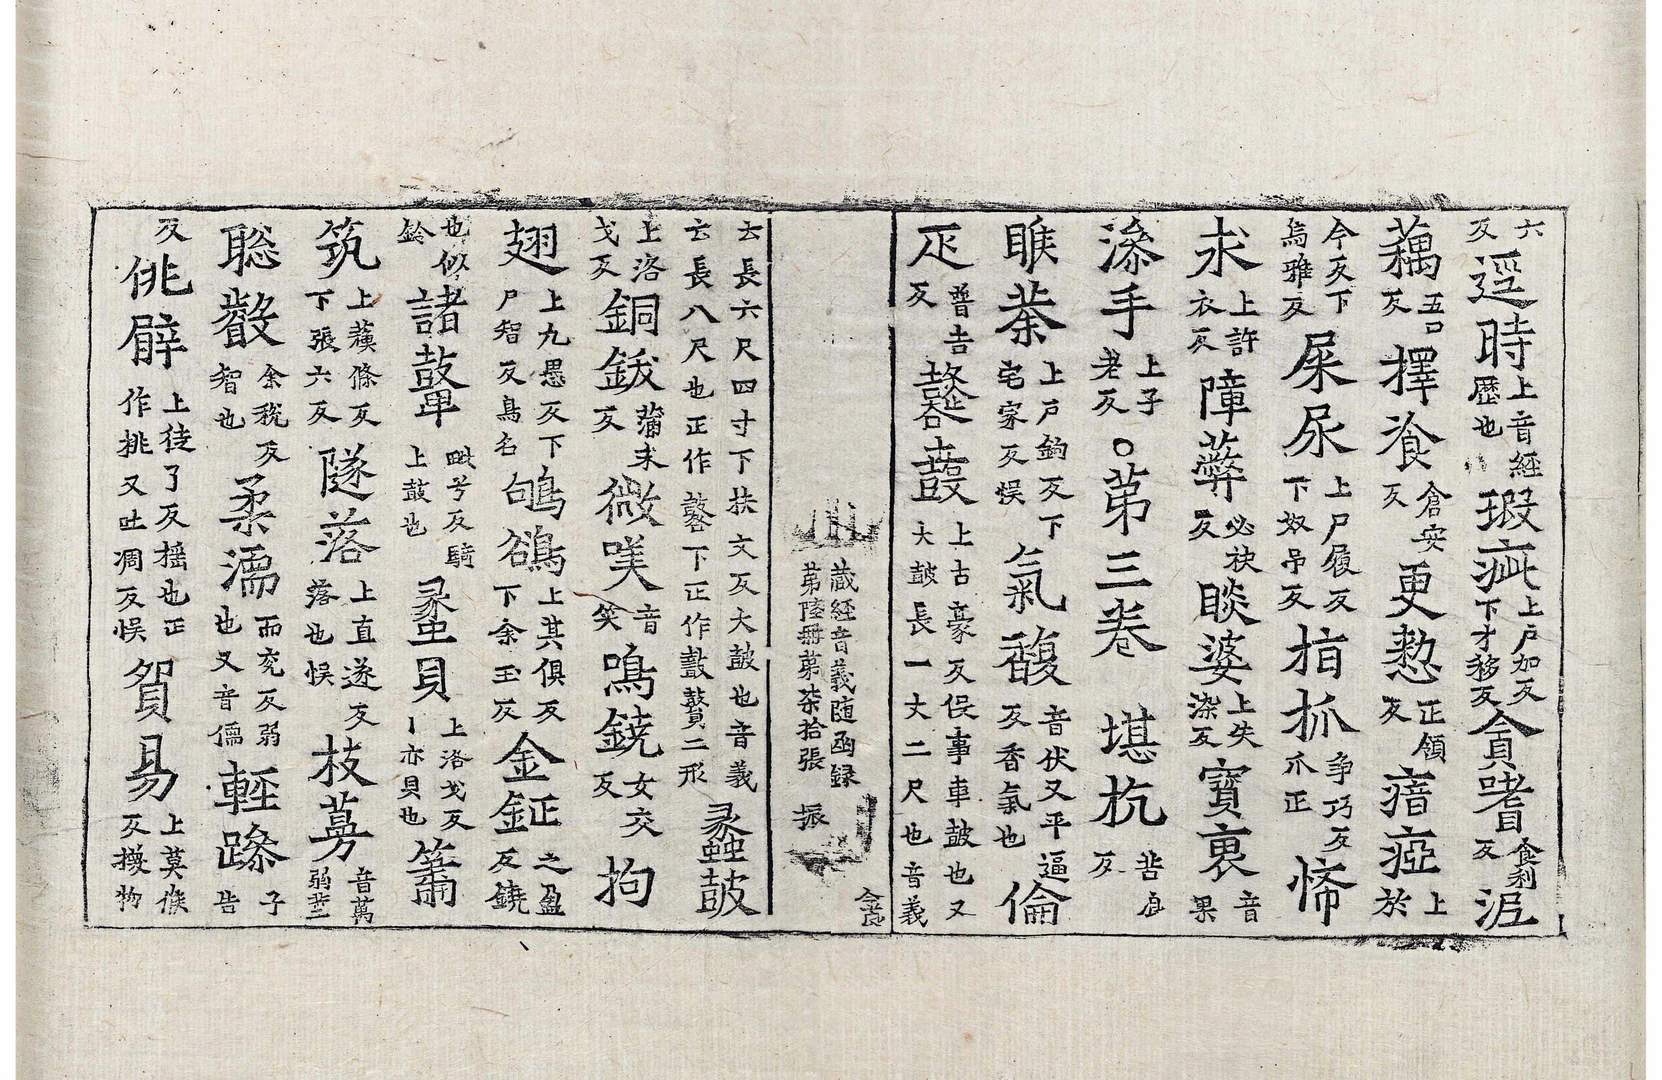 六反逕時上音經歷也瑕疵上戶加反下才移反貪嗜食利反泥
藕五口反擇飡倉安反更憗正領反瘖瘂上於
今反下烏雅反屎尿上尸履反下奴吊反指抓爭巧反爪正悕
求上許衣反障蔽必袂反睒婆上失染反寶裹音果
漆手上子老反○苐三卷 堪抗苦启反
睺荼上戶鉤反下宅家反悮氣馥音伏又平逼反香氣也倫
匹普吉反鼛鼓上古豪反俁事車皷也又大皷長一丈二尺也音義
藏經音義随函録苐陸冊苐柒拾張 振
食
云長六尺四寸下扶文反大皷也音義云長八尺也正作鼛下正作鼖鼖二形蠡鼓
上洛戈反銅鈸蒲末反微𠸍音笑鳴鐃女交反拘
翅上九愚反下尸智反鳥名鴝鵒上其俱反下余玉反金鉦之盈反鐃
也似鈴諸鼙毗兮反騎上鼓也蠡貝上洛戈反丨亦貝也簫
筑上蘓條反下張六反隧落上直遂反落也悮枝蔓音萬
聡叡余稅反智也柔濡而兖反弱也又音儒輕躁子告
反佻𤯝上徒了反揺也正作挑又吐凋反悮貿易上莫候反換物